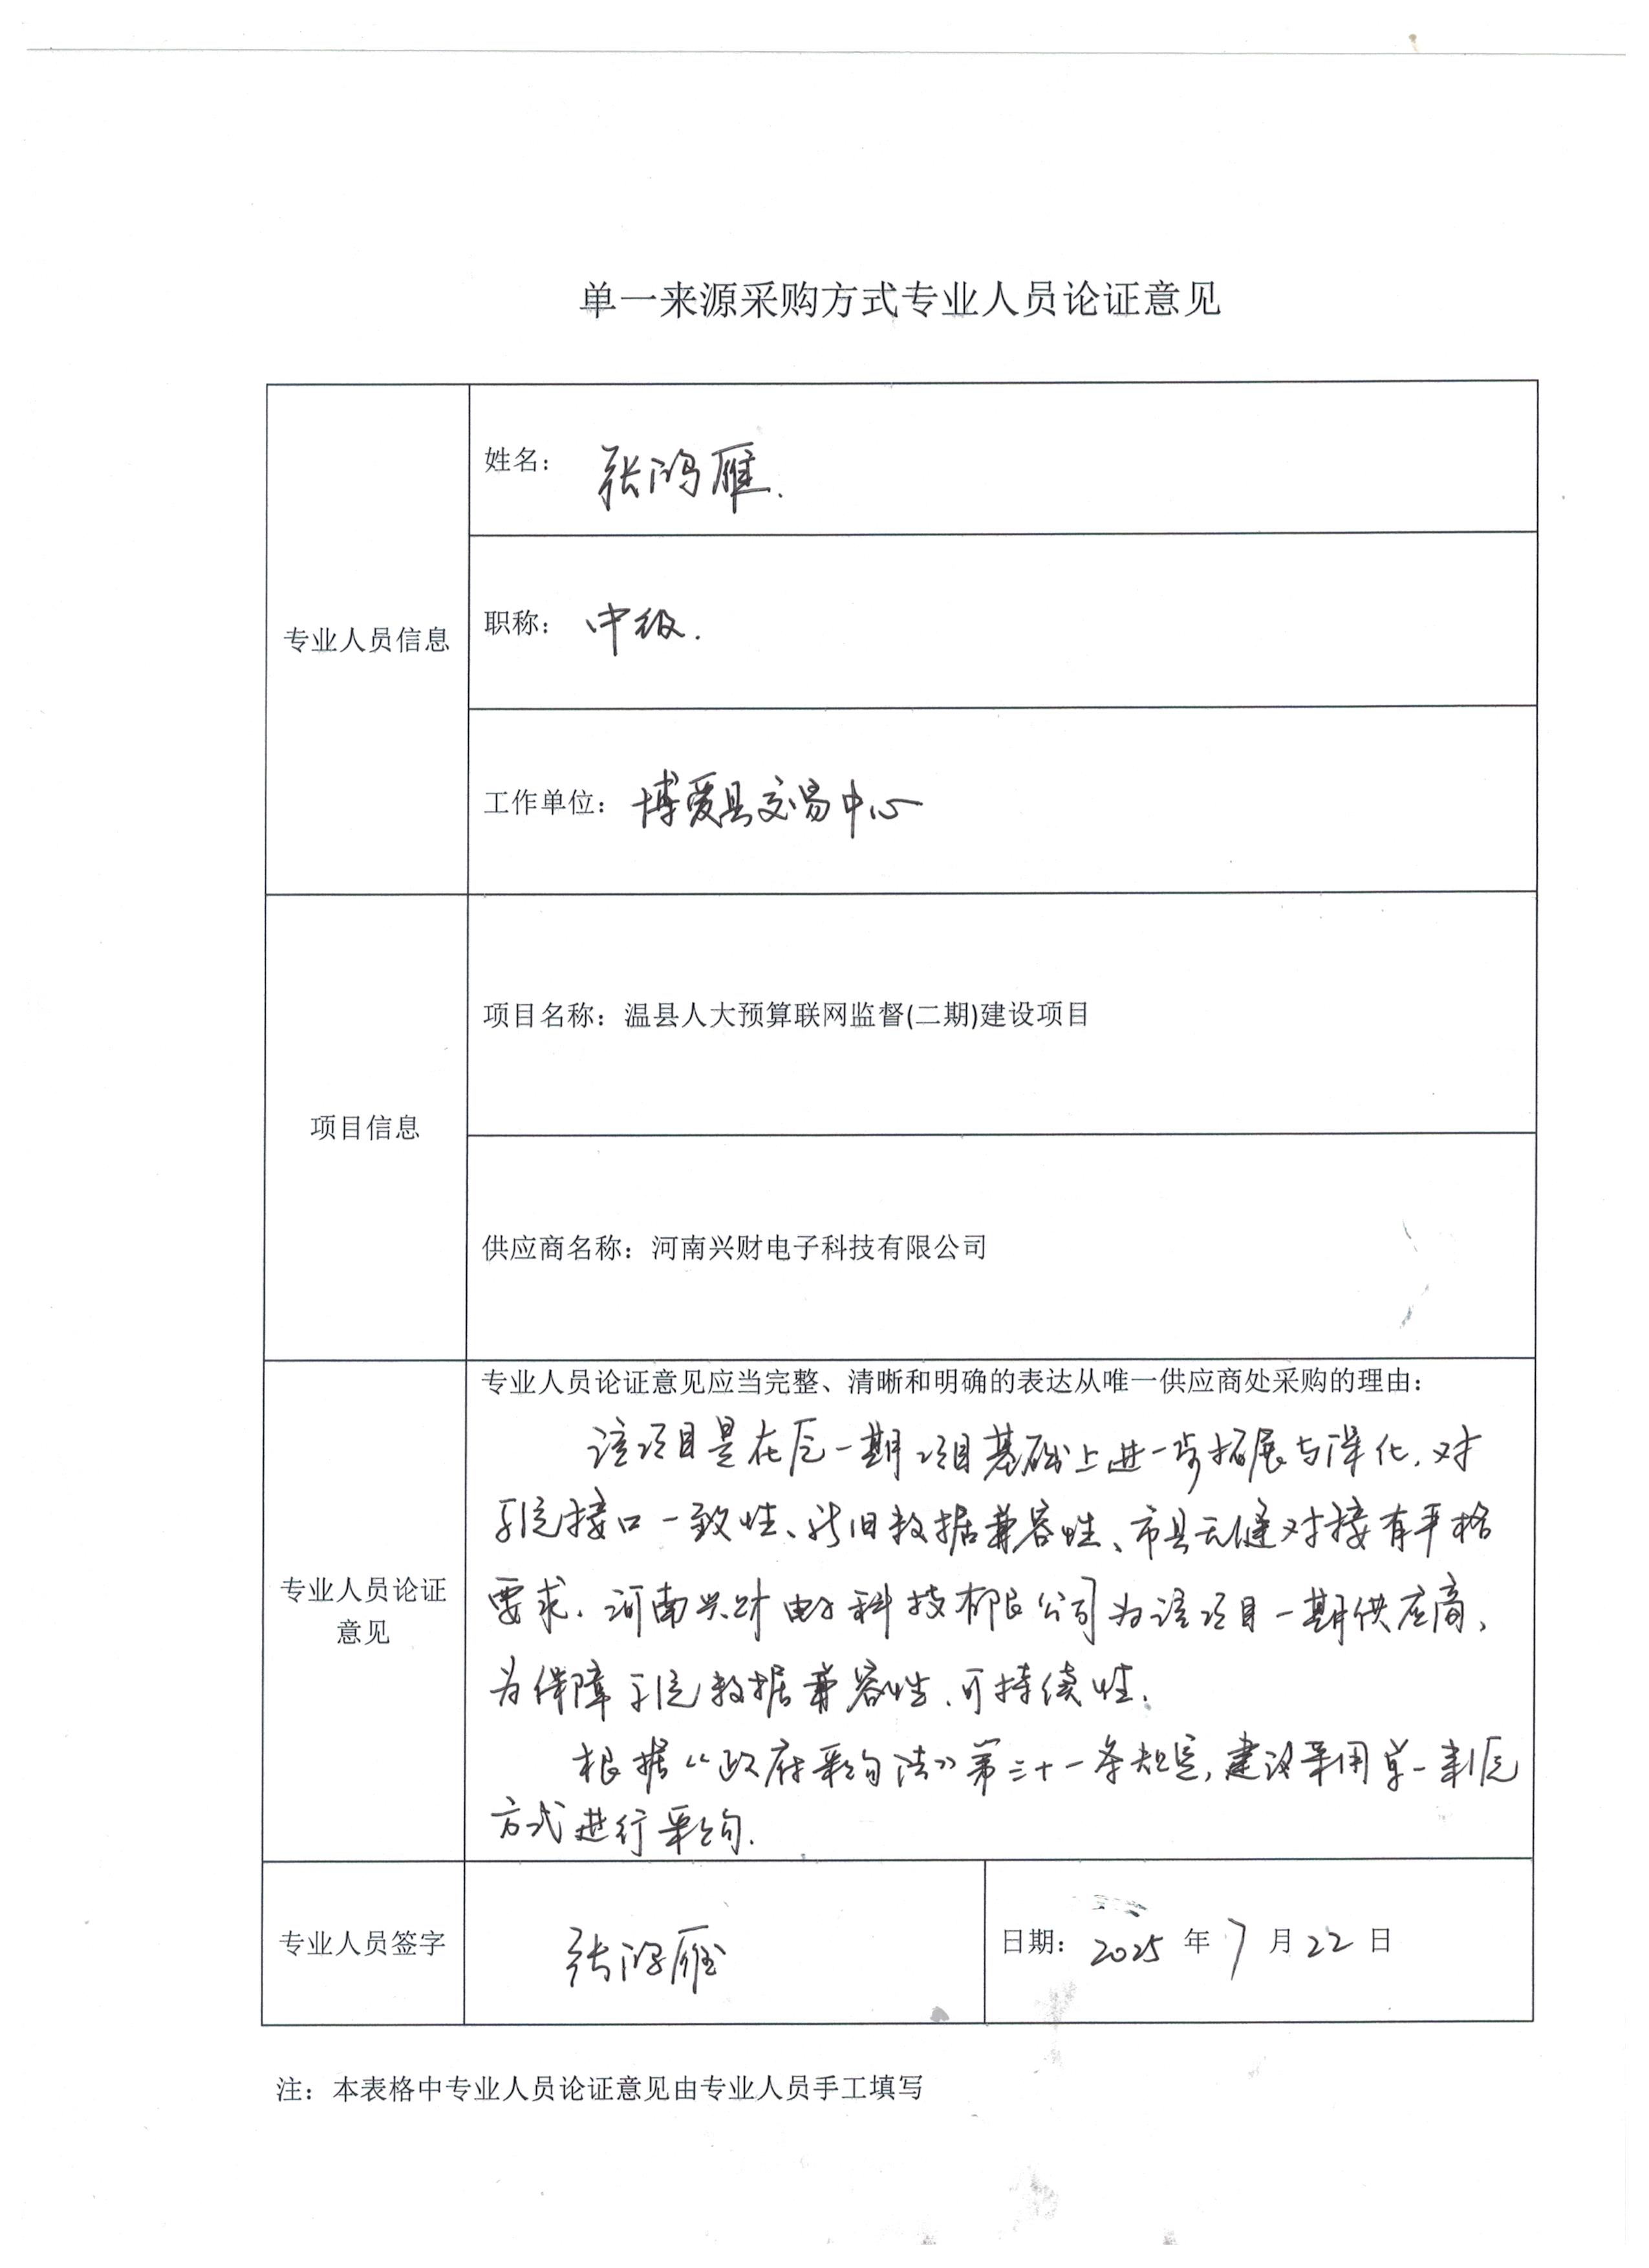 单一来源采购方式专业人员论证意见
专业人员信息
姓名：张鸿雁.
职称：中级.
工作单位：博爱县交易中心
项目信息
项目名称：温县人大预算联网监督(二期)建设项目
供应商名称：河南兴财电子科技有限公司
专业人员论证
意见
专业人员论证意见应当完整、清晰和明确的表达从唯一供应商处采购的理由：
该项目是在原一期项目基础上进一步拓展与深化，对
系统接口一致性、新旧数据兼容性、市县无缝对接有严格
要求。河南兴财电子科技有限公司为该项目一期供应商，
为保障系统数据兼容性、可持续性。
根据《政府采购法》第三十一条规定，建议采用单一来源
方式进行采购.
专业人员签字
张鸿雁
日期：2025年7月22日
注：本表格中专业人员论证意见由专业人员手工填写